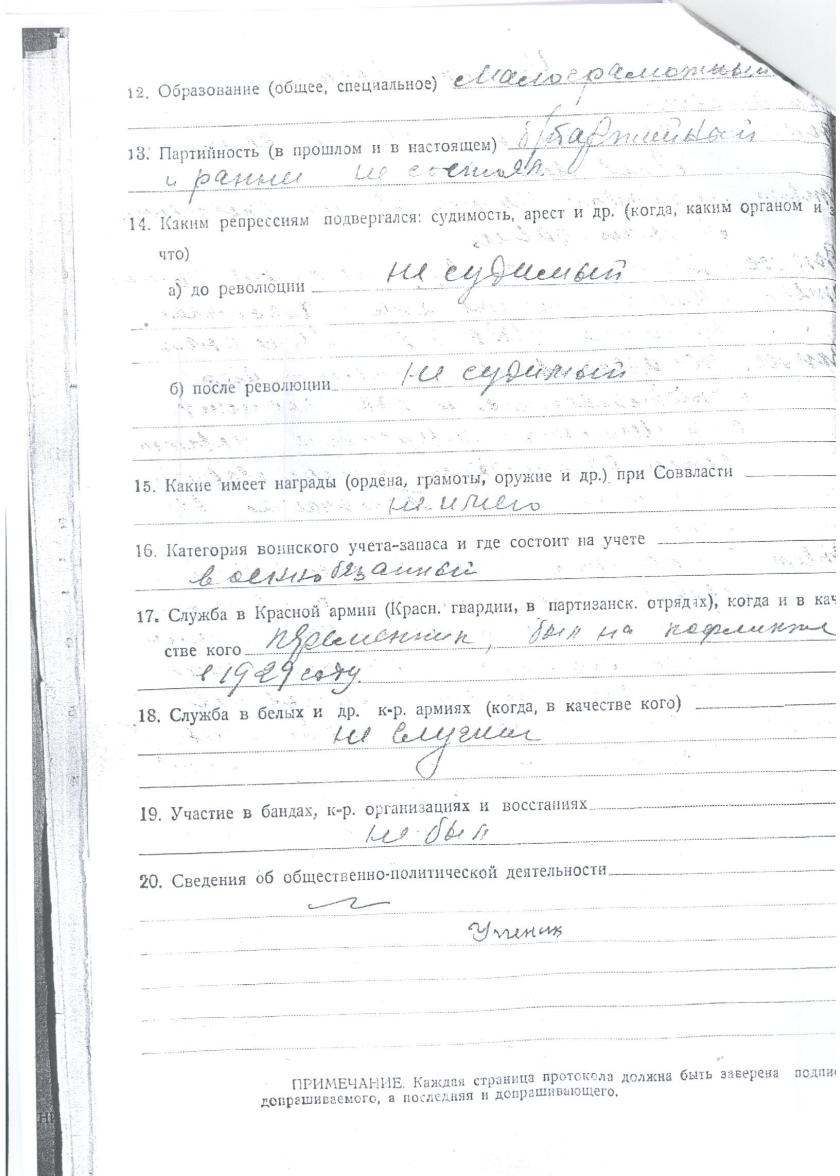 12. Образование (общее, специальное) Малограмотный
13. Партийность (в прошлом и в настоящем) б/партийный
и ранни не состоял.
14. Каким репрессиям подвергался: судимость, арест и др. (когда, каким органом и з
что)
а) до революции не судимый
б) после революции не судимый
15. Какие имеет награды (ордена, грамоты, оружие и др.) при Соввласти
16. Категория воинского учета-запаса и где состоит на учете
военнобязанный
17. Служба в Красной армии (Красн. гвардии, в партизанск. отрядах), когда и в кач
стве кого был на
в 1929 году.
18. Служба в белых и др. к-р. армиях (когда, в качестве кого)
не служил
19. Участие в бандах, к-р. организациях и восстаниях
не был
20. Сведения об общественно-политической деятельности
ПРИМЕЧАНИЕ. Каждая страница протокола должна быть заверена подпи
допрашиваемого, а последняя и допрашивающего.